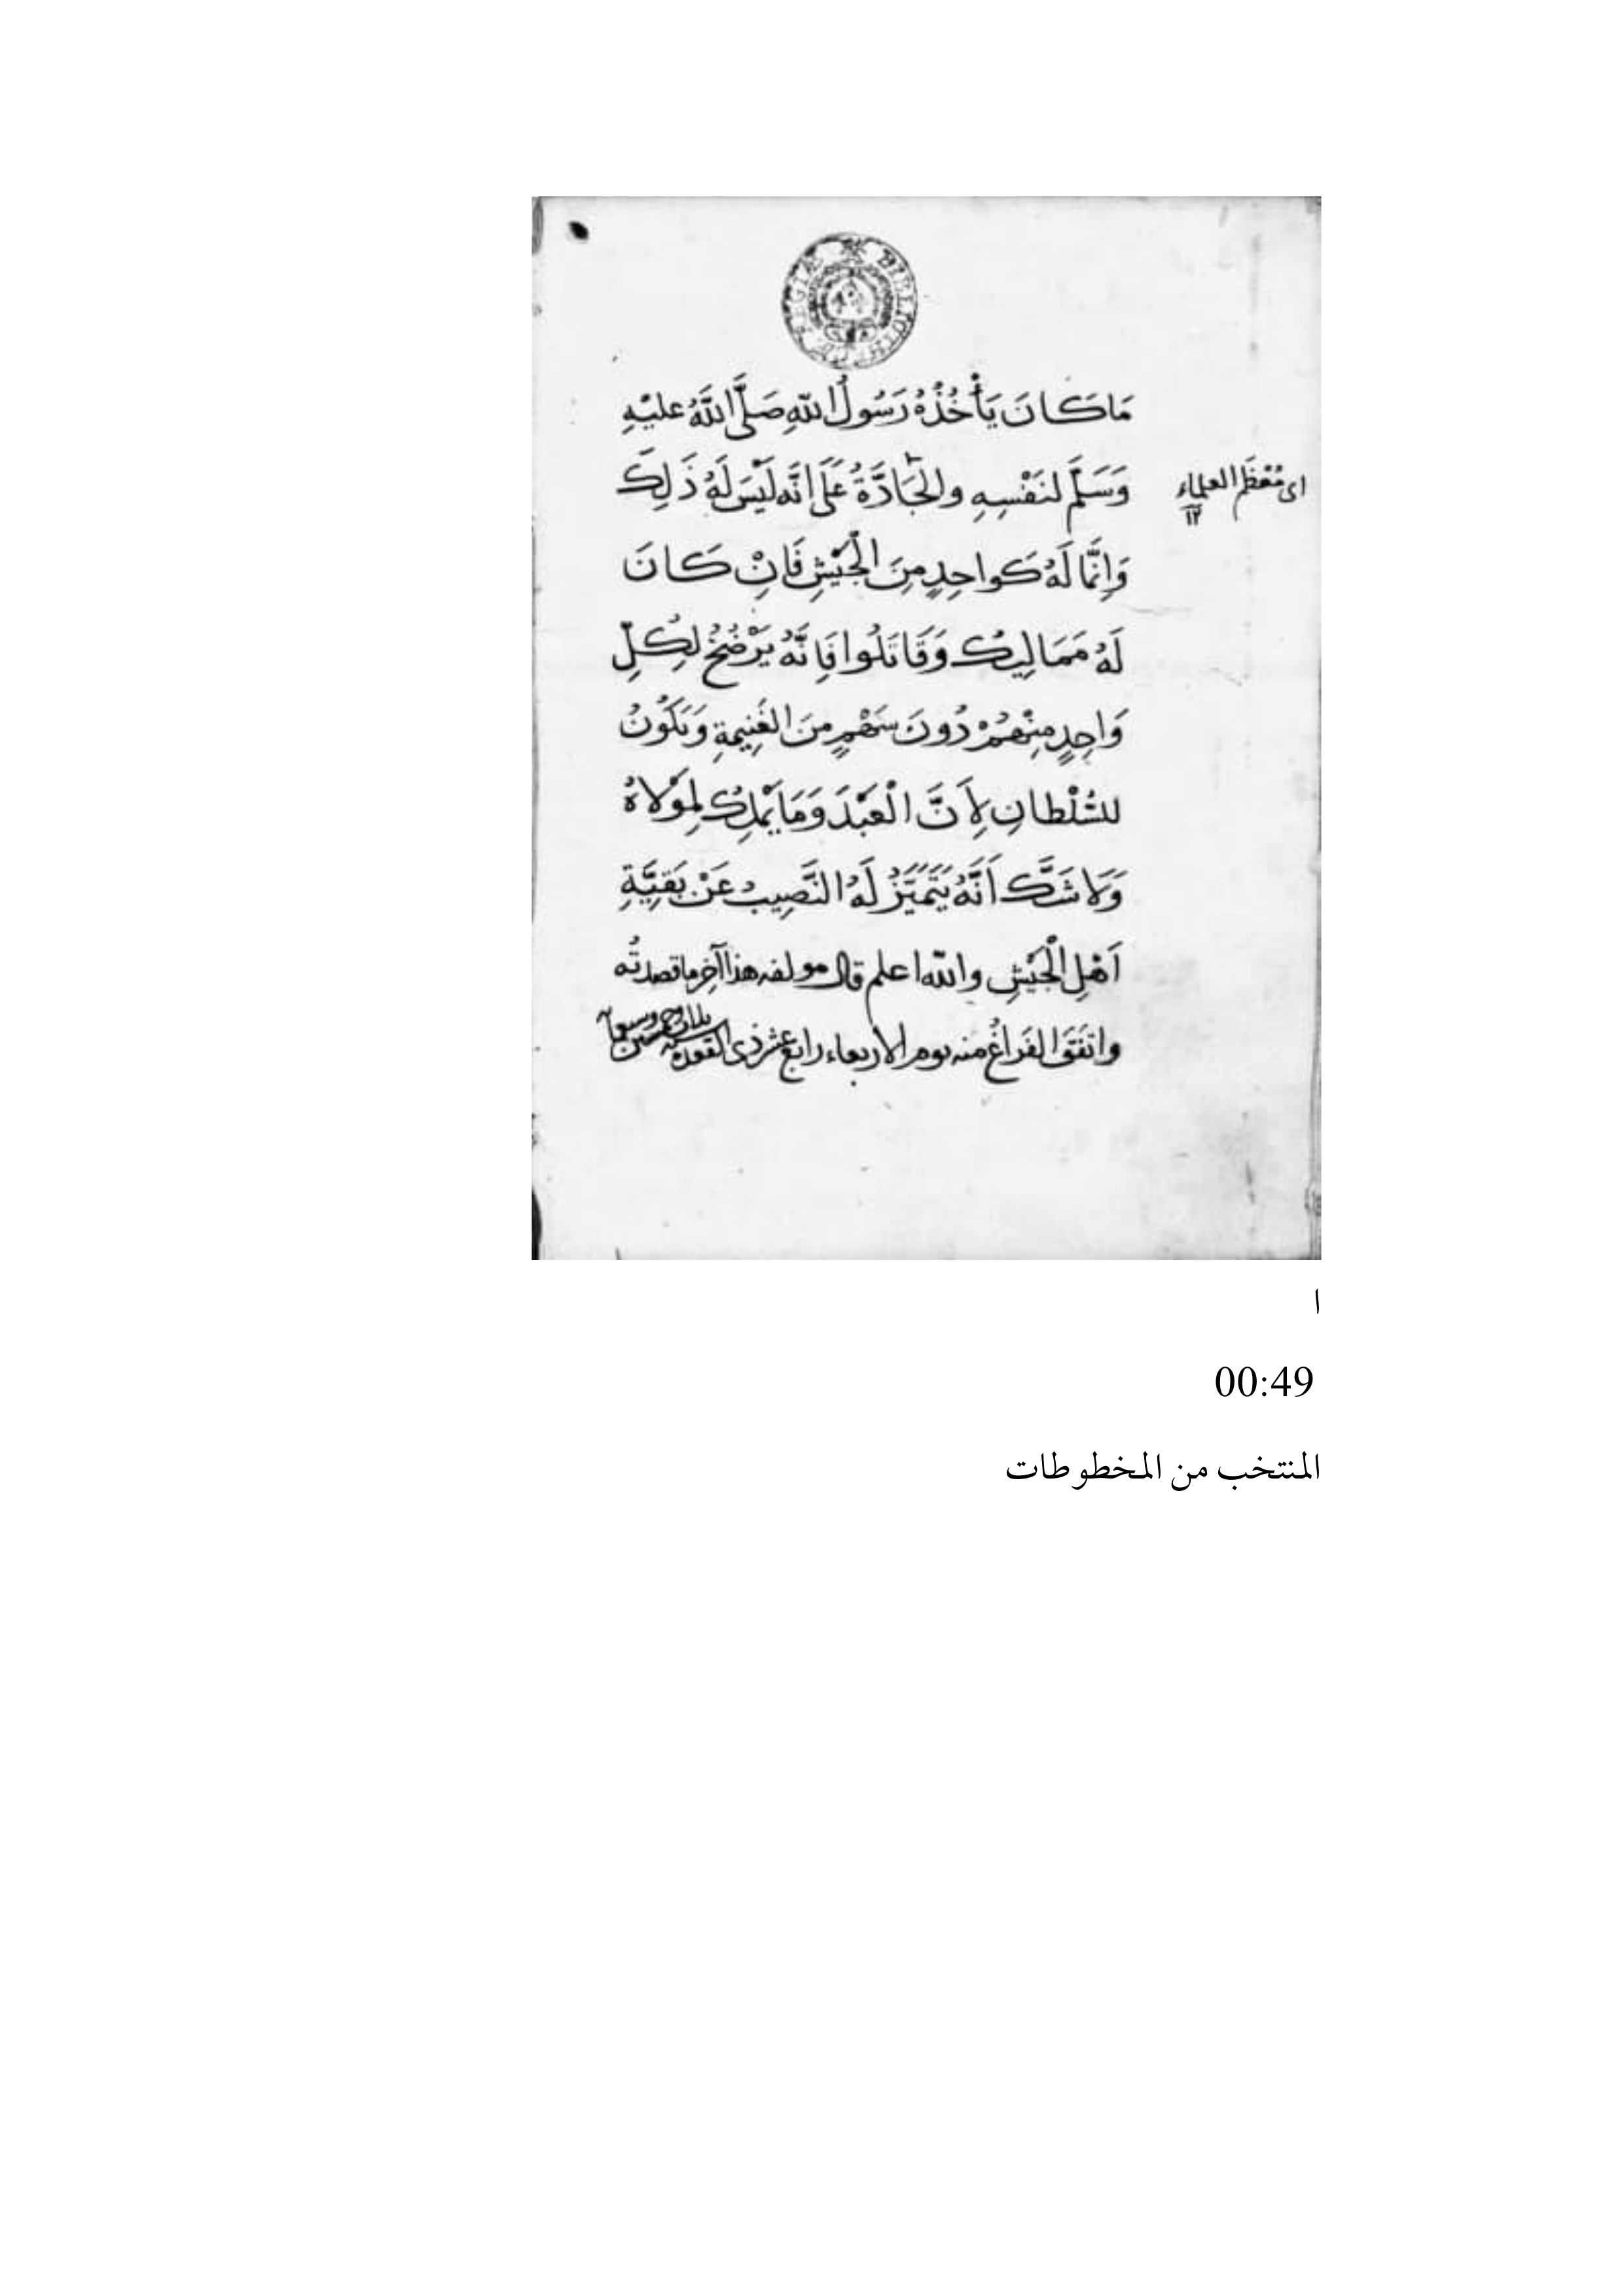 مَا كَانَ يَأْخُذُهُ رَسُولُ اللّٰهِ صَلَّى اللَّهُ عليْهِ
وَسَلَّمَ لنَفْسِهِ والجَادَّةُ عَلَى انَّه لَيْسَ لَهُ ذَلِكَ
اى مُعْظَم العلماء ١٢
وَاِنَّمَا لَهُ كَواحِدٍ مِنَ الْجَيْشِ فَانِْ كَانَ
لَهُ مَمَالِيك وَقَاتَلُوا فَاِنَّهُ يَرْضُخُ لِكُلِّ
وَاحِدٍ مِنْهُمْ دُونَ سَهْمٍ مِنَ الغَنِيمةِ وَيَكُونُ
للسُّلْطانِ لِأَنَّ الْعَبْدَ وَمَا يَمْلِكُ لِمَوْلاهُ
وَلا شَكَّ اَنَّهُ يَتَمَيَّزُ لَهُ النَّصِيبُ عَنْ بَقِيَّةِ
اَهْلِ الْجَيْشِ واللّٰه اعلم قال مولفه هذا آخِر ما قصدتُه
واتفَقَ الفَراغُ منه يوم الاربعاء رابع عشر ذى القعدة سنة ثلاث وخمسين وسبعمائة
ا
00:49
المنتخب من المخطوطات